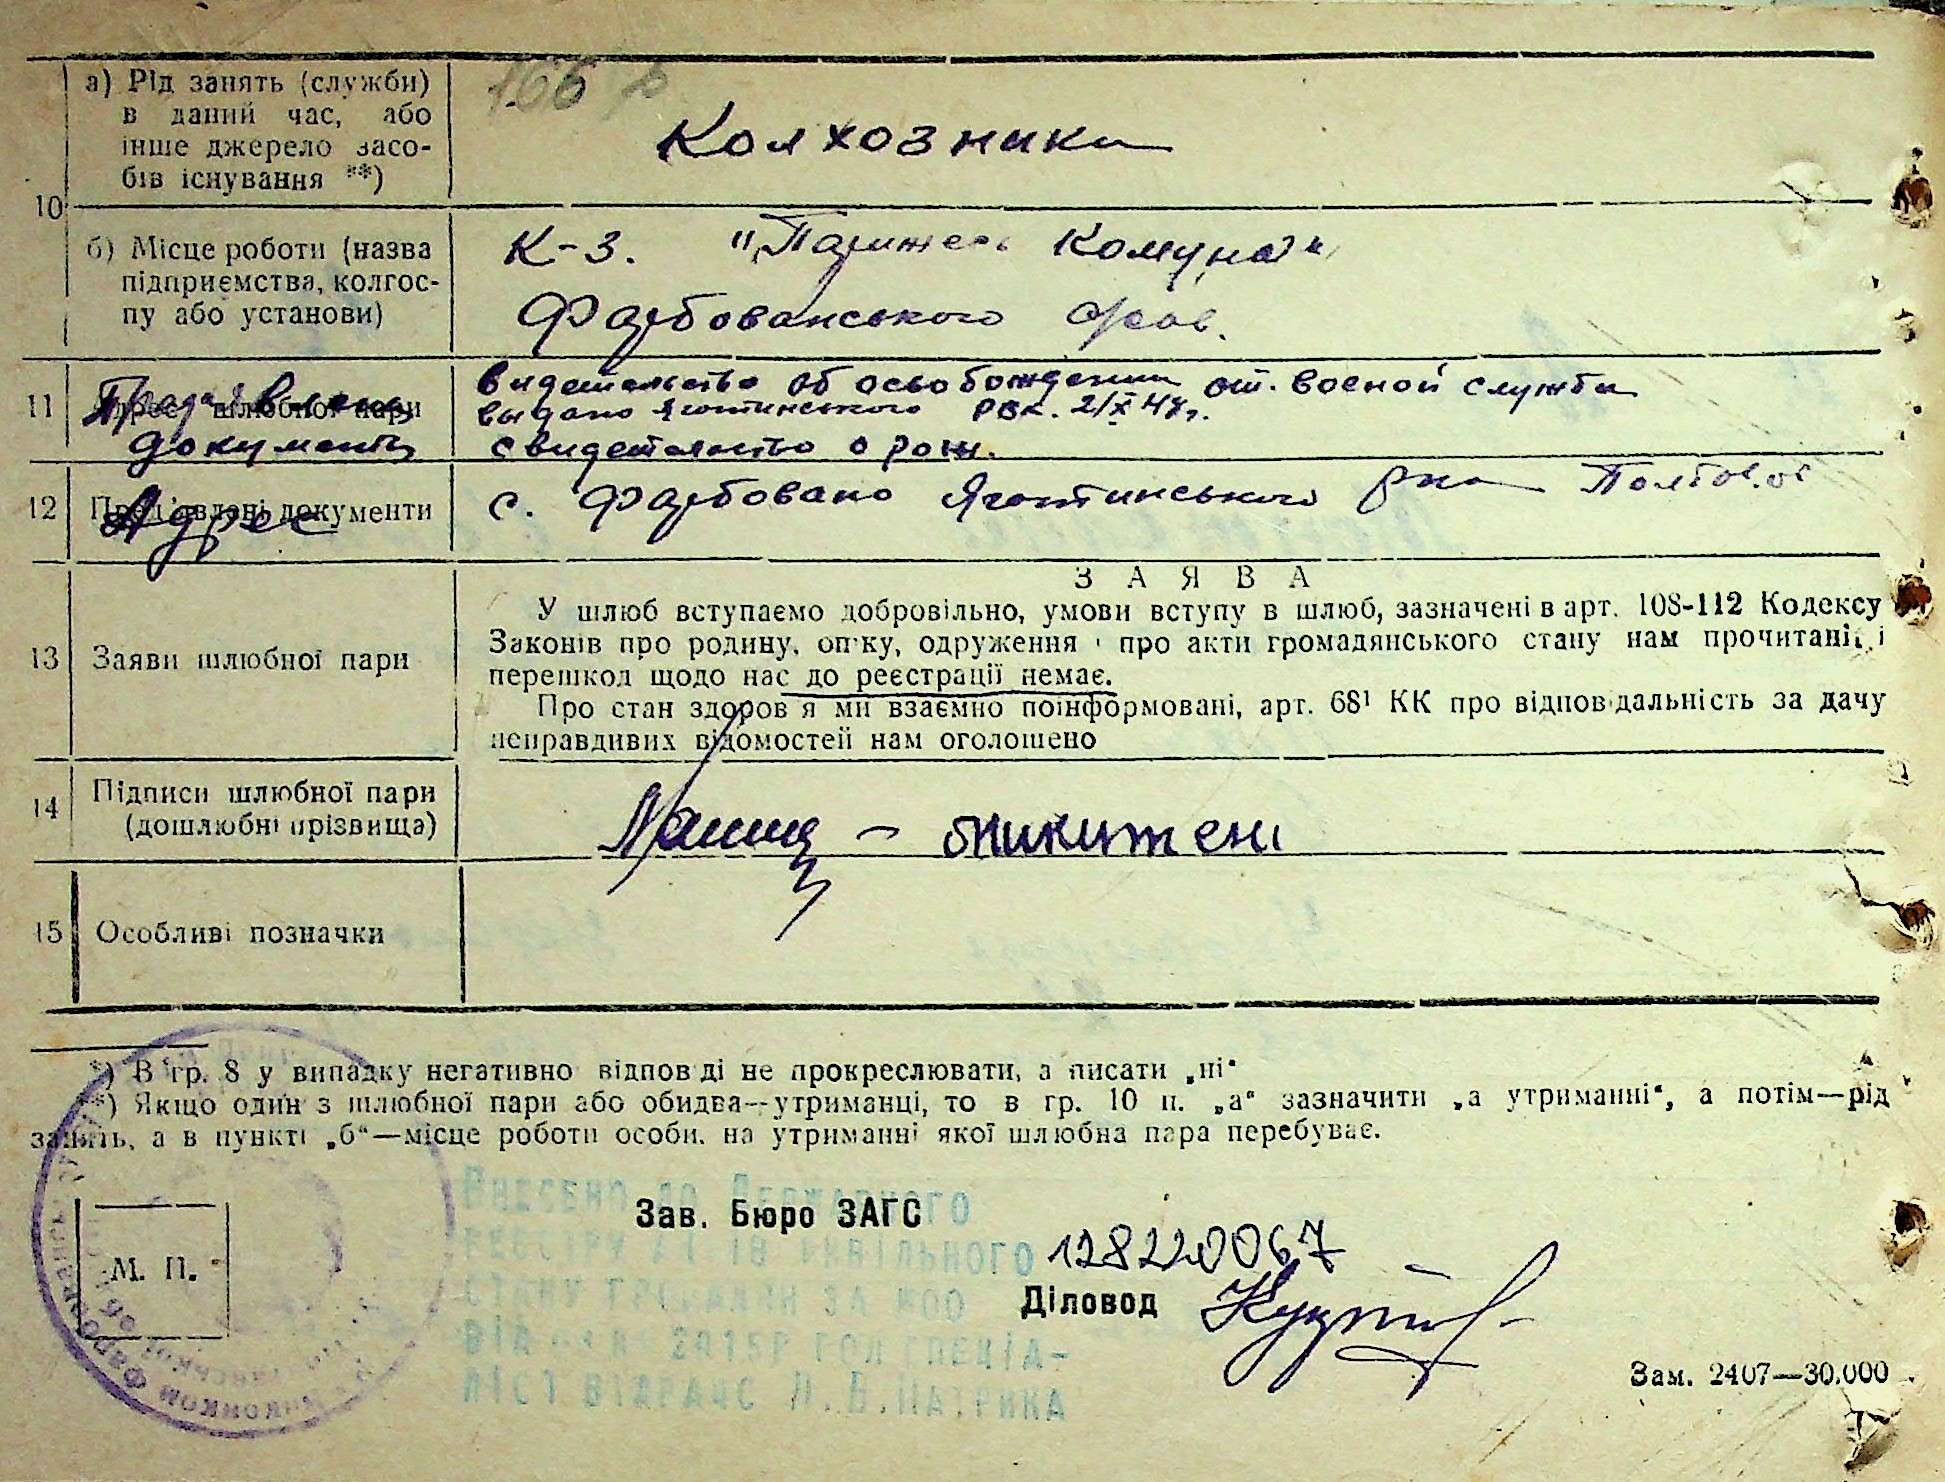 а) Рід занять (служби)
в даний час, або
інше джерело засо-
бів існування **)
Колхозники
10
б) Місце роботи (назва
підприємства, колгос-
пу або установи)
К-З. "Парижсь Комуна"
Фарбованського
11
Документы
видетельство об освобождении от. военой служби
выдано Яготинського РВК. 2/X 47г.
свидетельство о рож.
12 Пред'явлені документи
Адрес
с. Фарбовано Яготинського р-на Полтов.об
13 Заяви шлюбної пари
ЗАЯВА
У шлюб вступаємо добровільно, умови вступу в шлюб, зазначені в арт. 108-112 Кодексу
Законів про родину, опіку, одруження і про акти громадянського стану нам прочитані і
перешкод щодо нас до реєстрації немає.
Про стан здоров'я ми взаємно поінформовані, арт. 68¹ КК про відповідальність за дачу
неправдивих відомостей нам оголошено
14 Підписи шлюбної пари
(дошлюбні прізвища)
15 Особливі позначки
*) В гр. 8 у випадку негативно відповіді не прокреслювати, а писати „ні"
**) Якщо один з шлюбної пари або обидва—утриманці, то в гр. 10 п. „а" зазначити „а утриманні", а потім—рід
занять, а в пункті „б"—місце роботи особи, на утриманні якої шлюбна пара перебуває.
Внесено до Державного
реєстру актів цивільного
стану громадян за №00
Зав. Бюро ЗАГС
128220067
М. П.
Діловод
Зам. 2407—30.000